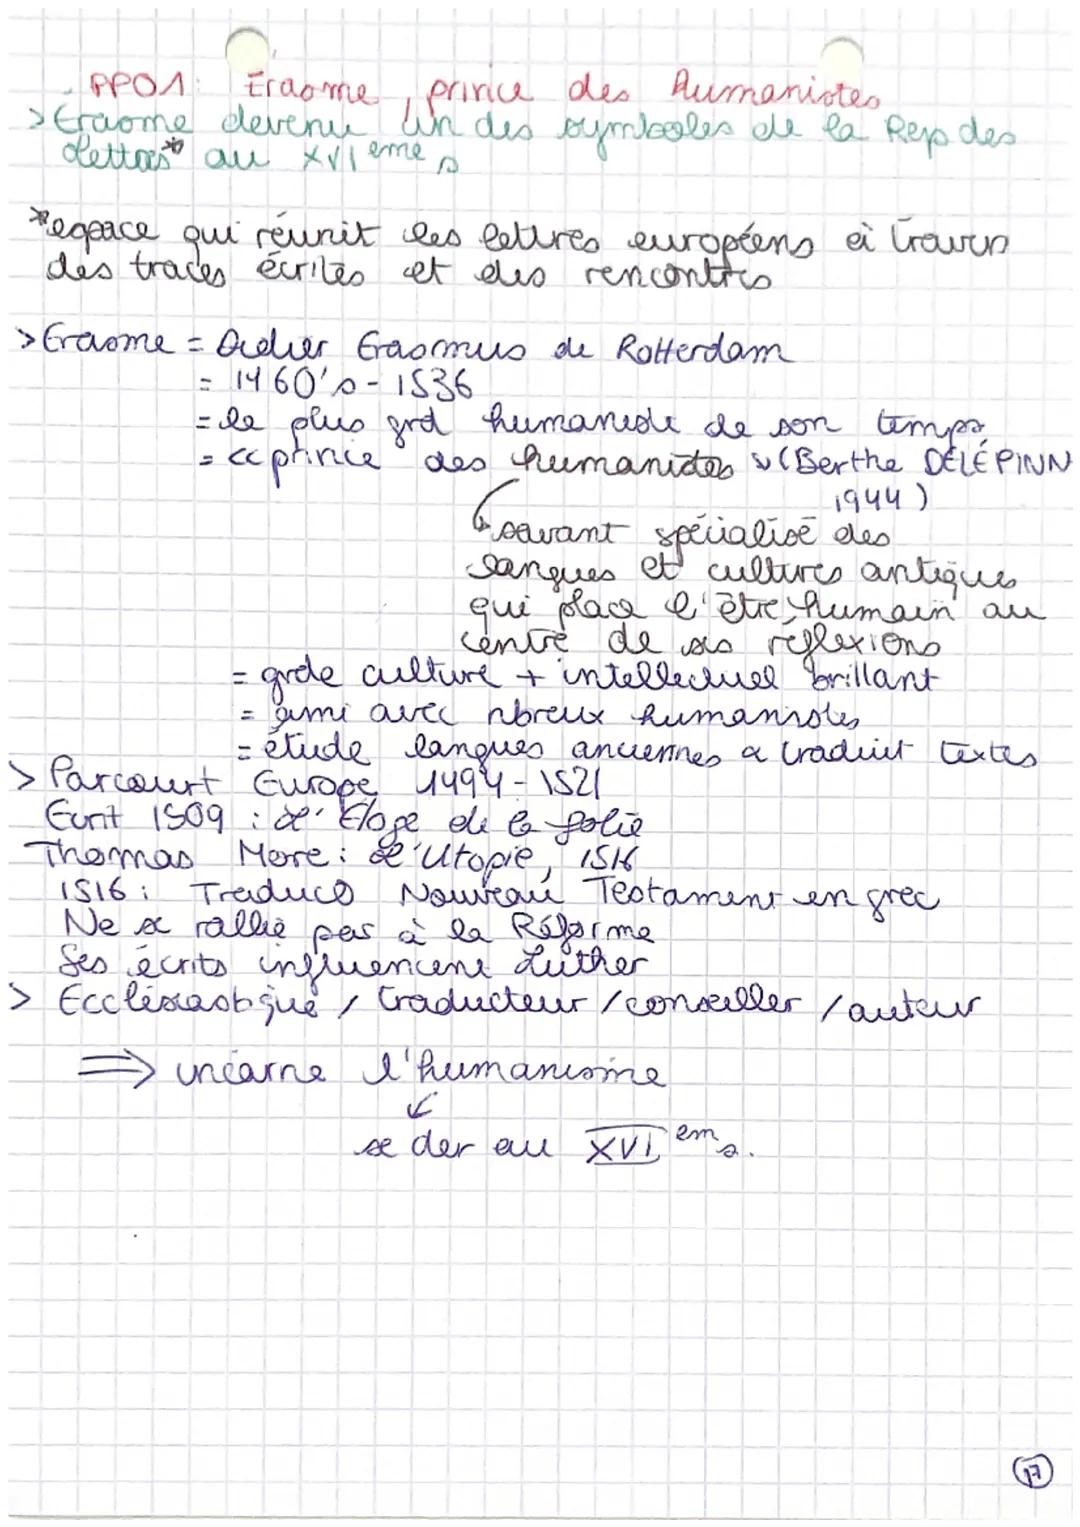 PPO1 : Erasme, prince des Humanistes
> Erasme devenu un des symboles de la Rep des
Lettres* au XVIème s
*espace qui réunit les lettrés européens à travers
des traces écrites et des rencontres
> Erasme = Didier Erasmus de Rotterdam
= 1460's - 1536
= le plus grd humaniste de son temps
= « prince des humanistes » (Berthe DELÉPINN
1944)
↳ savant spécialisé des
langues et cultures antiques
qui place l'être humain au
centre de ses réflexions
= grde culture + intellectuel brillant
= ami avec nbreux humanistes
= étude langues anciennes a traduit textes
> Parcourt Europe 1494 - 1521
Ecrit 1509 : L'Eloge de la folie
Thomas More : L'Utopie, 1516
1516 : Traduco Nouveau Testament en grec
Ne se rallie pas à la Réforme
Ses écrits influencent Luther
> Ecclésiastique / traducteur / conseiller / auteur
⇒ incarne l'humanisme
↙
se der au XVI em s.
17